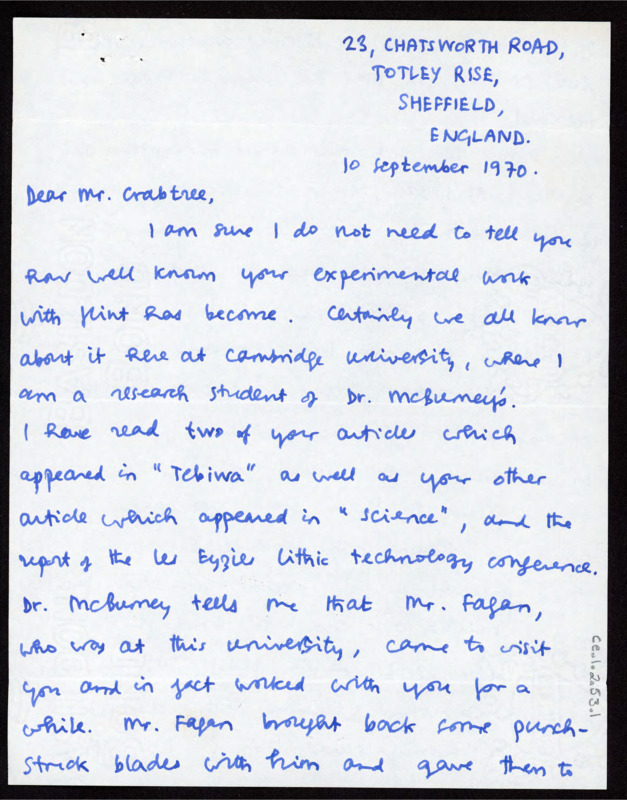 23, CHATSWORTH ROAD,
TOTLEY RISE,
SHEFFIELD,
ENGLAND.
10 September 1970.
Dear Mr. Crabtree,
I am sure I do not need to tell you
how well known your experimental work
with flint has become. Certainly we all know
about it here at Cambridge University, where I
am a research student of Dr. McBurney's.
I have read two of your articles which
appeared in "Tebiwa" as well as your other
article which appeared in "Science", and the
report of the Les Eyzies Lithic technology conference.
Dr. McBurney tells me that Mr. Fagan,
who was at this university, came to visit
you and in fact worked with you for a
while. Mr. Fagan brought back some punch-
struck blades with him and gave them to
ce.1.2.53.1